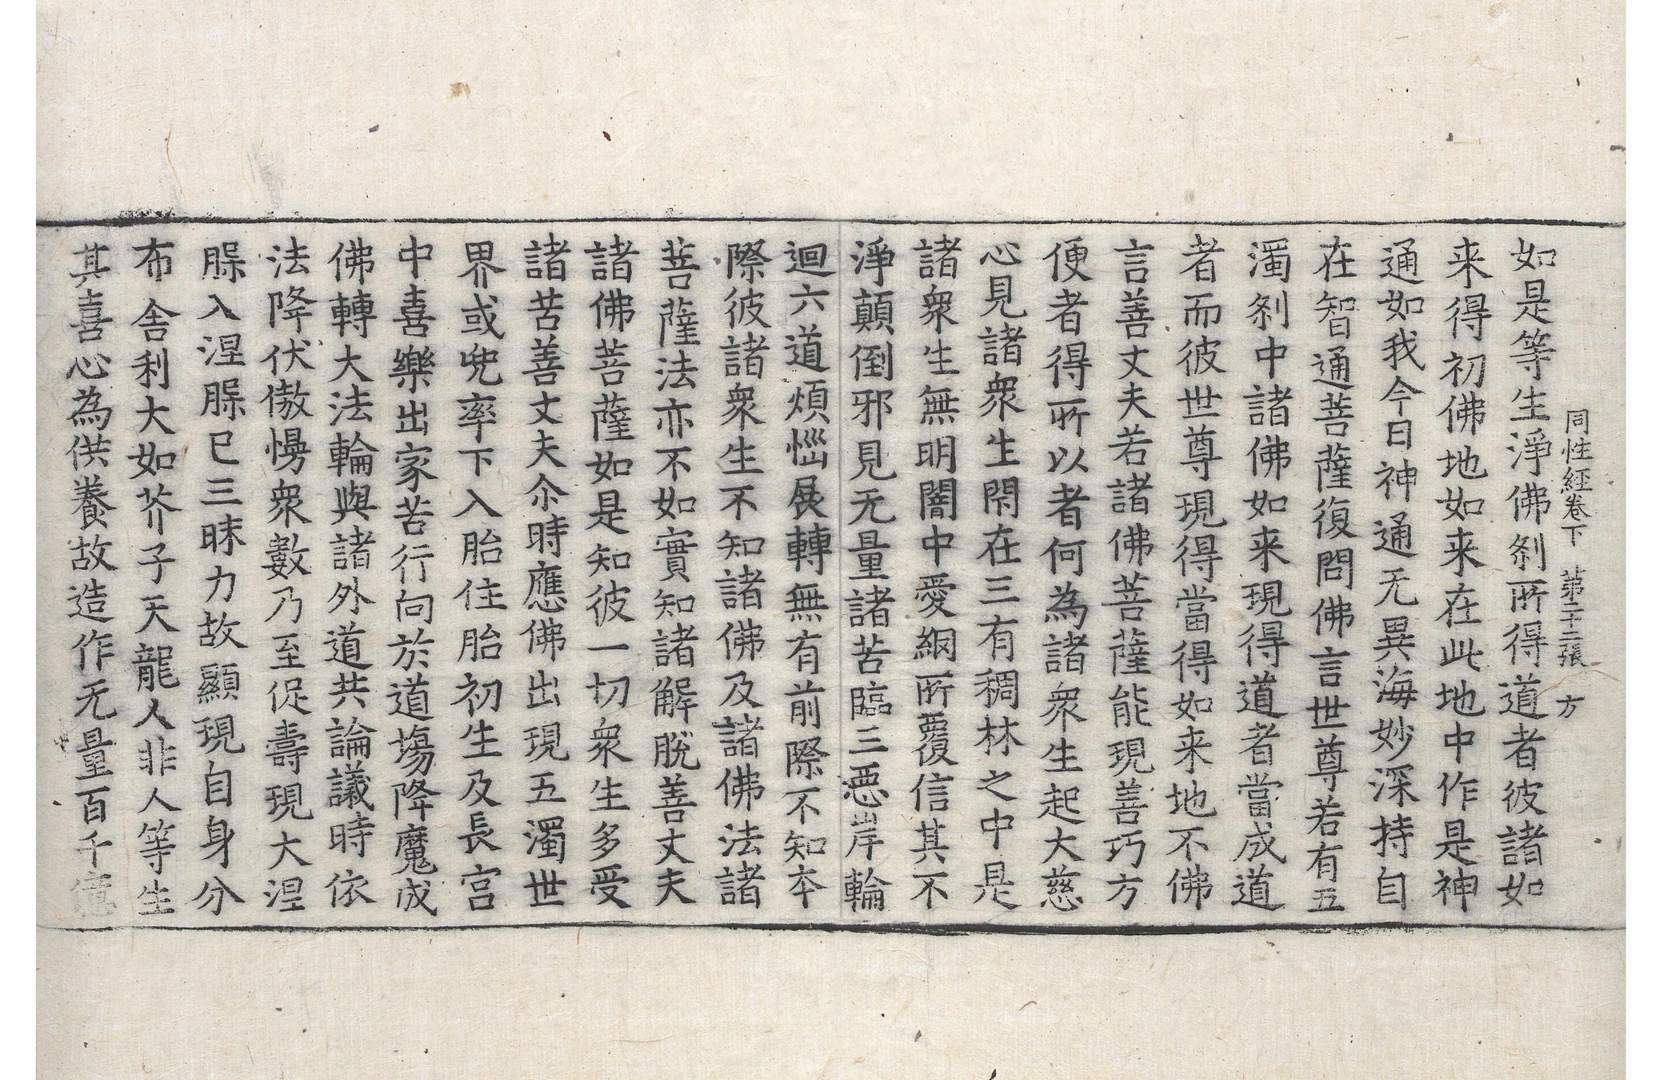 同性經卷下 第二十二張 方
如是等生淨佛剎所得道者彼諸如
来得初佛地如来在此地中作是神
通如我今日神通无異海妙深持自
在智通菩薩復問佛言世尊若有五
濁剎中諸佛如来現得道者當成道
者而彼世尊現得當得如来地不佛
言善丈夫若諸佛菩薩能現善巧方
便者得所以者何為諸衆生起大慈
心見諸衆生閇在三有稠林之中是
諸衆生無明闇中愛網所覆信其不
淨顛倒邪見无量諸苦臨三惡岸輪
迴六道煩惱展轉無有前際不知夲
際彼諸衆生不知諸佛及諸佛法諸
菩薩法亦不如實知諸解脫善丈夫
諸佛菩薩如是知彼一切衆生多受
諸苦善丈夫尒時應佛出現五濁世
界或兜率下入胎住胎初生及長宮
中喜樂出家苦行向於道塲降魔成
佛轉大法輪與諸外道共論議時依
法降伏傲慢衆數乃至促壽現大涅
腪入涅腪已三昧力故顯現自身分
布舍利大如芥子天龍人非人等生
其喜心為供養故造作无量百千億